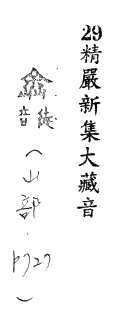 29精嚴新集大藏音
徒音（山部，P727）